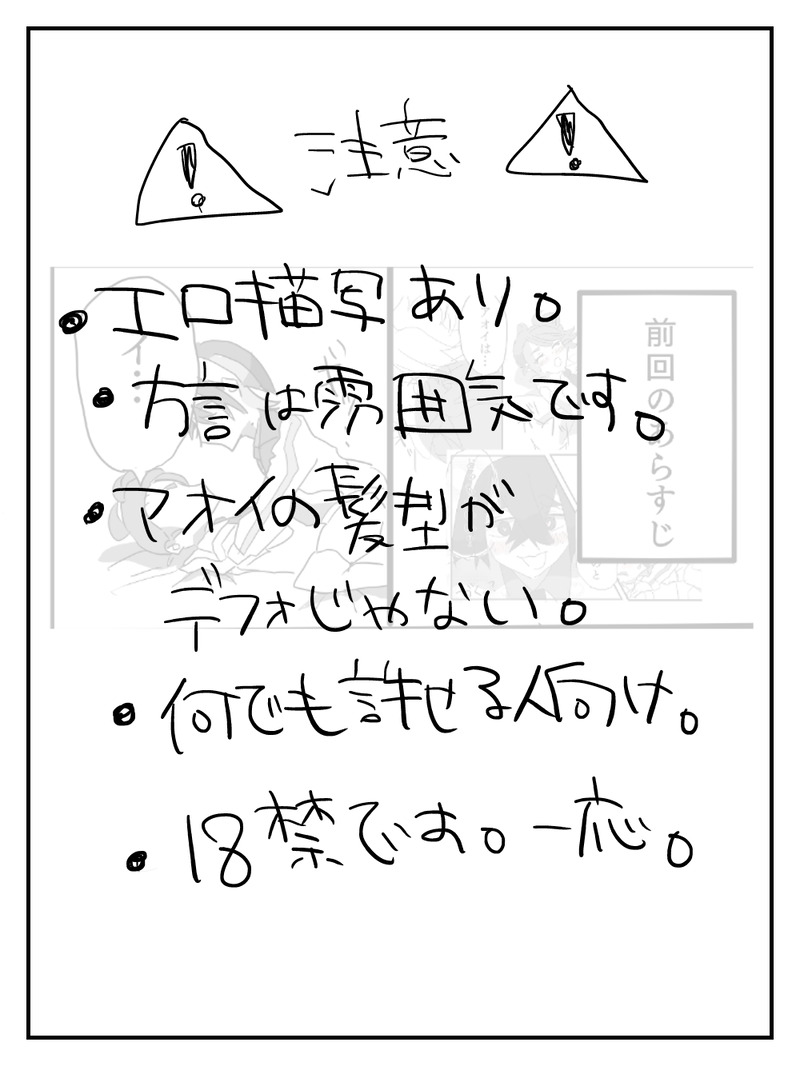 注意
・エロ描写あり。
・方言は雰囲気です。
・アオイの髪型が
デフォじゃない。
・何でも許せる人向け。
・18禁です。一応。
前回のあらすじ
アオイは…
イ…